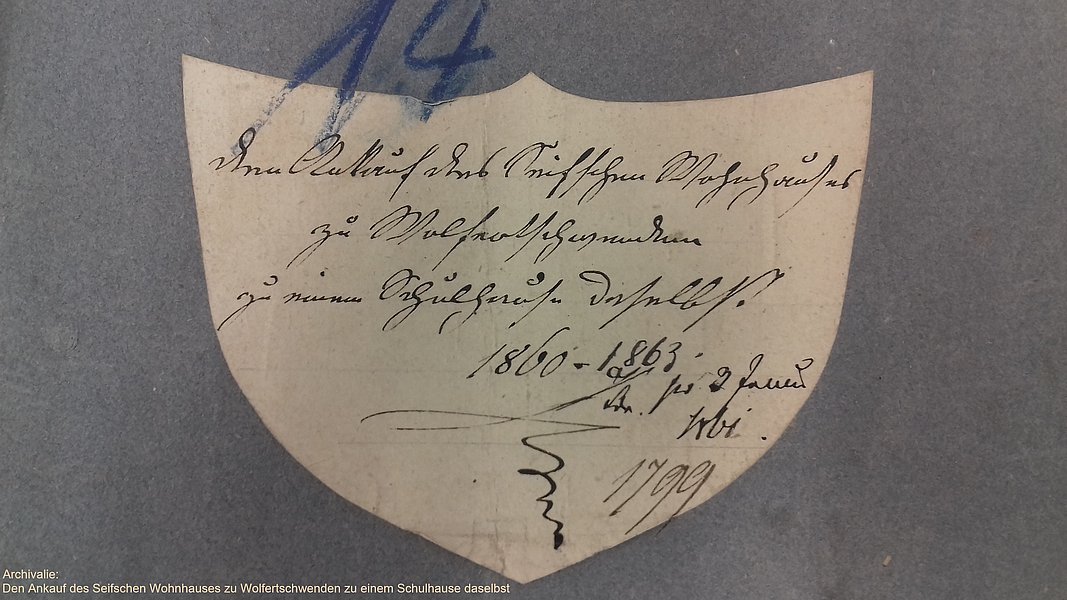 14
den Ankauf des Seifschen Wohnhauses
zu Wolfertschwenden
zu einem Schulhause daselbst.
1860 - 1863.
1799
Archivalie:
Den Ankauf des Seifschen Wohnhauses zu Wolfertschwenden zu einem Schulhause daselbst